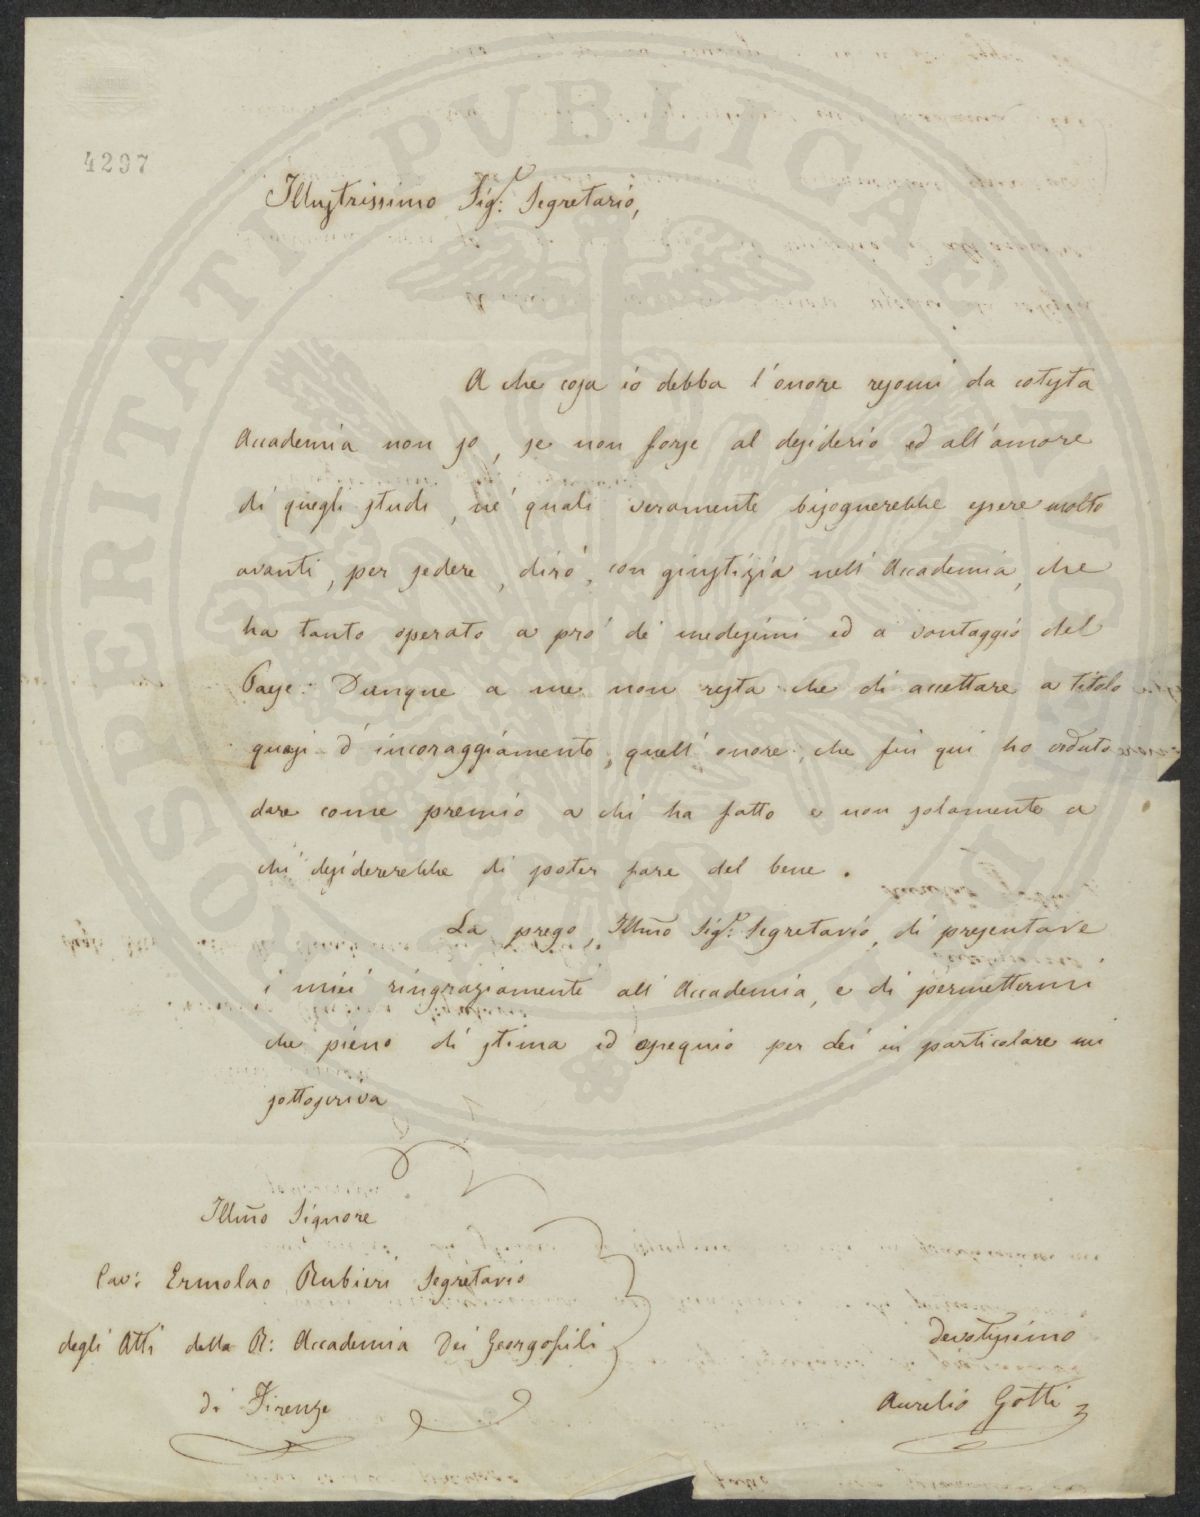 4297
Illustrissimo Sig.r Segretario,
A che cosa io debba l'onore resomi da cotesta
Accademia non so, se non forse al desiderio ed all'amore
di quegli studi, ne' quali veramente bisognerebbe essere molto
avanti, per sedere, dirò, con giustizia nell'Accademia, che
ha tanto operato a prò de' medesimi ed a vantaggio del
Paese. Dunque a me non resta che di accettare a titolo
quasi d'incoraggiamento, quell'onore, che fin qui ho veduto
dare come premio a chi ha fatto e non solamente a
chi desidererebbe di poter fare del bene.
La prego, Illmo Sig.r Segretario, di presentare
i miei ringraziamenti all'Accademia, e di permettermi
che pieno di stima ed ossequio per Lei in particolare mi
sottoscriva
Illmo Signore
Cav: Ermolao Rubieri Segretario
degli Atti della R: Accademia Dei Georgofili
di Firenze
Devotissimo
Aurelio Gotti
PROSPERITATI PVBLICAE AVGENDAE